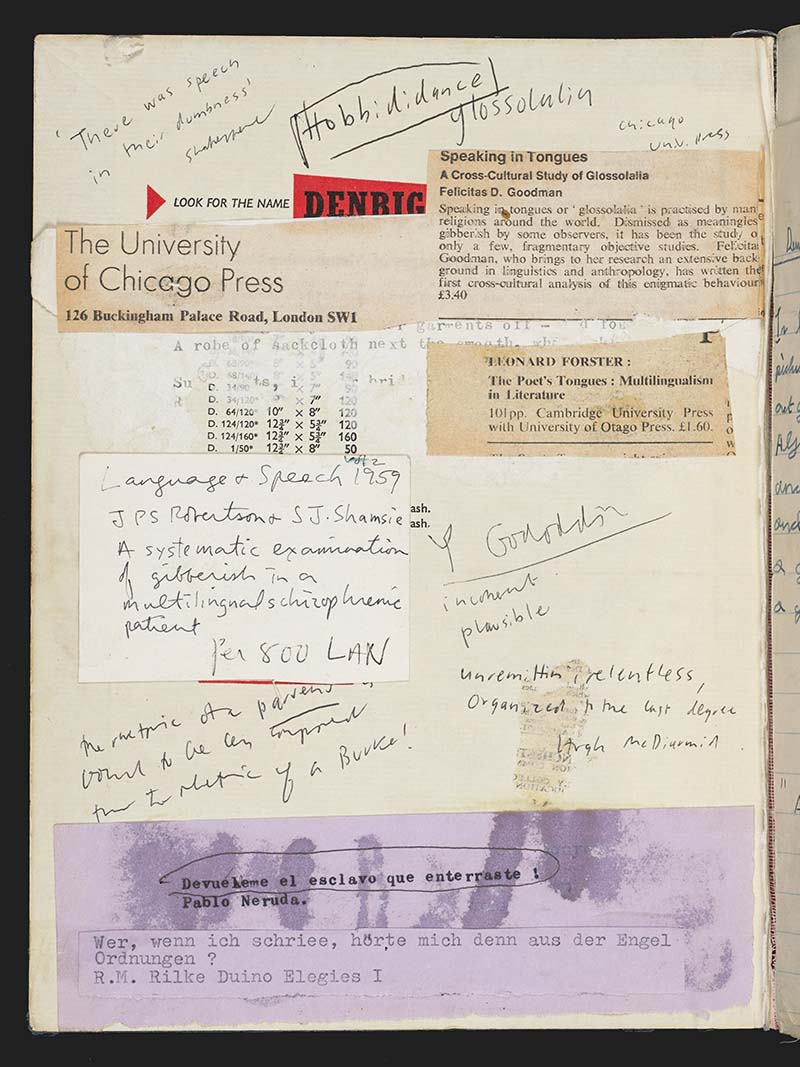 'There was speech
in their dumbness'
Shakespeare
Hobbididance
glossolalia
Chicago
Univ. Press
LOOK FOR THE NAME DENBIG
Speaking in Tongues
A Cross-Cultural Study of Glossolalia
Felicitas D. Goodman
Speaking in tongues or 'glossolalia' is practised by man
religions around the world. Dismissed as meaningles
gibberish by some observers, it has been the study o
only a few, fragmentary objective studies. Felicita
Goodman, who brings to her research an extensive back
ground in linguistics and anthropology, has written the
first cross-cultural analysis of this enigmatic behaviour
£3.40
The University
of Chicago Press
126 Buckingham Palace Road, London SW1
garrents off -
A robe of sackcloth next the
D. 34/90
D. 34/120* × 7" 120
D. 64/120 10" × 8" 120
D. 124/120* 12¾" × 5¾" 120
D. 124/160* 12¾" × 5¾" 160
D. 1/50* 12¾" × 8" 50
LEONARD FORSTER:
The Poet's Tongues: Multilingualism
in Literature
101pp. Cambridge University Press
with University of Otago Press. £1.60.
Language & Speech 1959
J P S Robertson & S J. Shamsie
A systematic examination
of gibberish in a
multilingual schizophrenic
patient
Per 800 LAN
ash.
ash.
Y Gododdin
incoherent
plausible
unremitting, relentless,
Organized to the last degree
Hugh McDiarmid.
the rhetoric of a parvenu is
bound to be less composed
than the rhetoric of a Burke!
Devuélveme el esclavo que enterraste !
Pablo Neruda.
Wer, wenn ich schriee, hörte mich denn aus der Engel
Ordnungen ?
R.M. Rilke Duino Elegies I